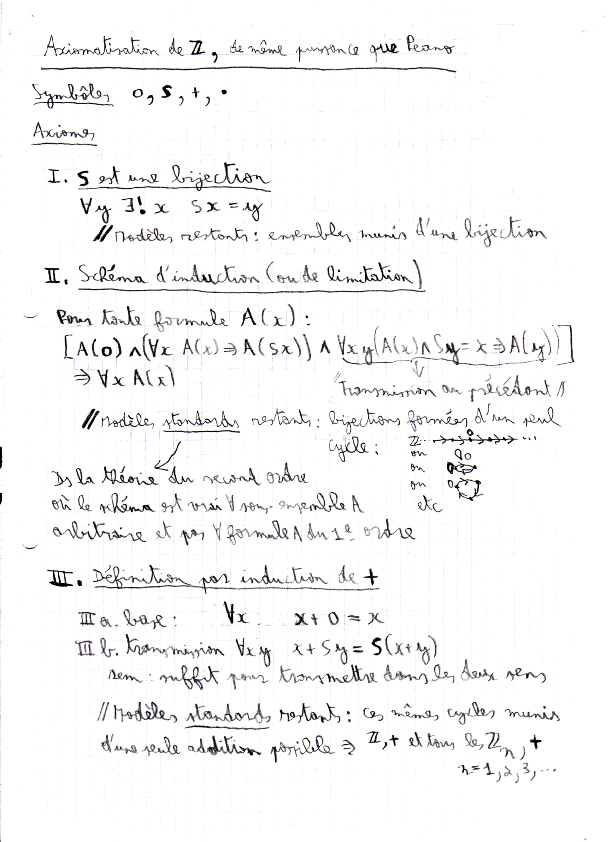 Axiomatisation de ℤ, de même puissance que Peano
Symbôles 0, S, +, •
Axiomes
I. S est une bijection
∀y ∃! x Sx = y
// Modèles restants : ensembles munis d'une bijection
II. Schéma d'induction (ou de limitation)
Pour toute formule A(x) :
[A(0) ∧ (∀x A(x) ⇒ A(Sx))] ∧ ∀x y (A(x) ∧ Sy = x ⇒ A(y))]
⇒ ∀x A(x)
"Transmission au précédent"
// Modèles standards restants : bijections formées d'un seul
cycle : ℤ ... 0 ...
ou 0
ou 0
ou 0
etc
Ds la théorie du second ordre
où le schéma est vrai ∀ sous-ensemble A
arbitraire et pas ∀ formule A du 1e ordre
III. Définition par induction de +
III a. base : ∀x x + 0 = x
III b. transmission ∀x y x + Sy = S(x+y)
rem : suffit pour transmettre dans les deux sens
// Modèles standards restants : ces mêmes cycles munis
d'une seule addition possible ⇒ ℤ, + et tous les ℤn, +
n = 1, 2, 3, ...